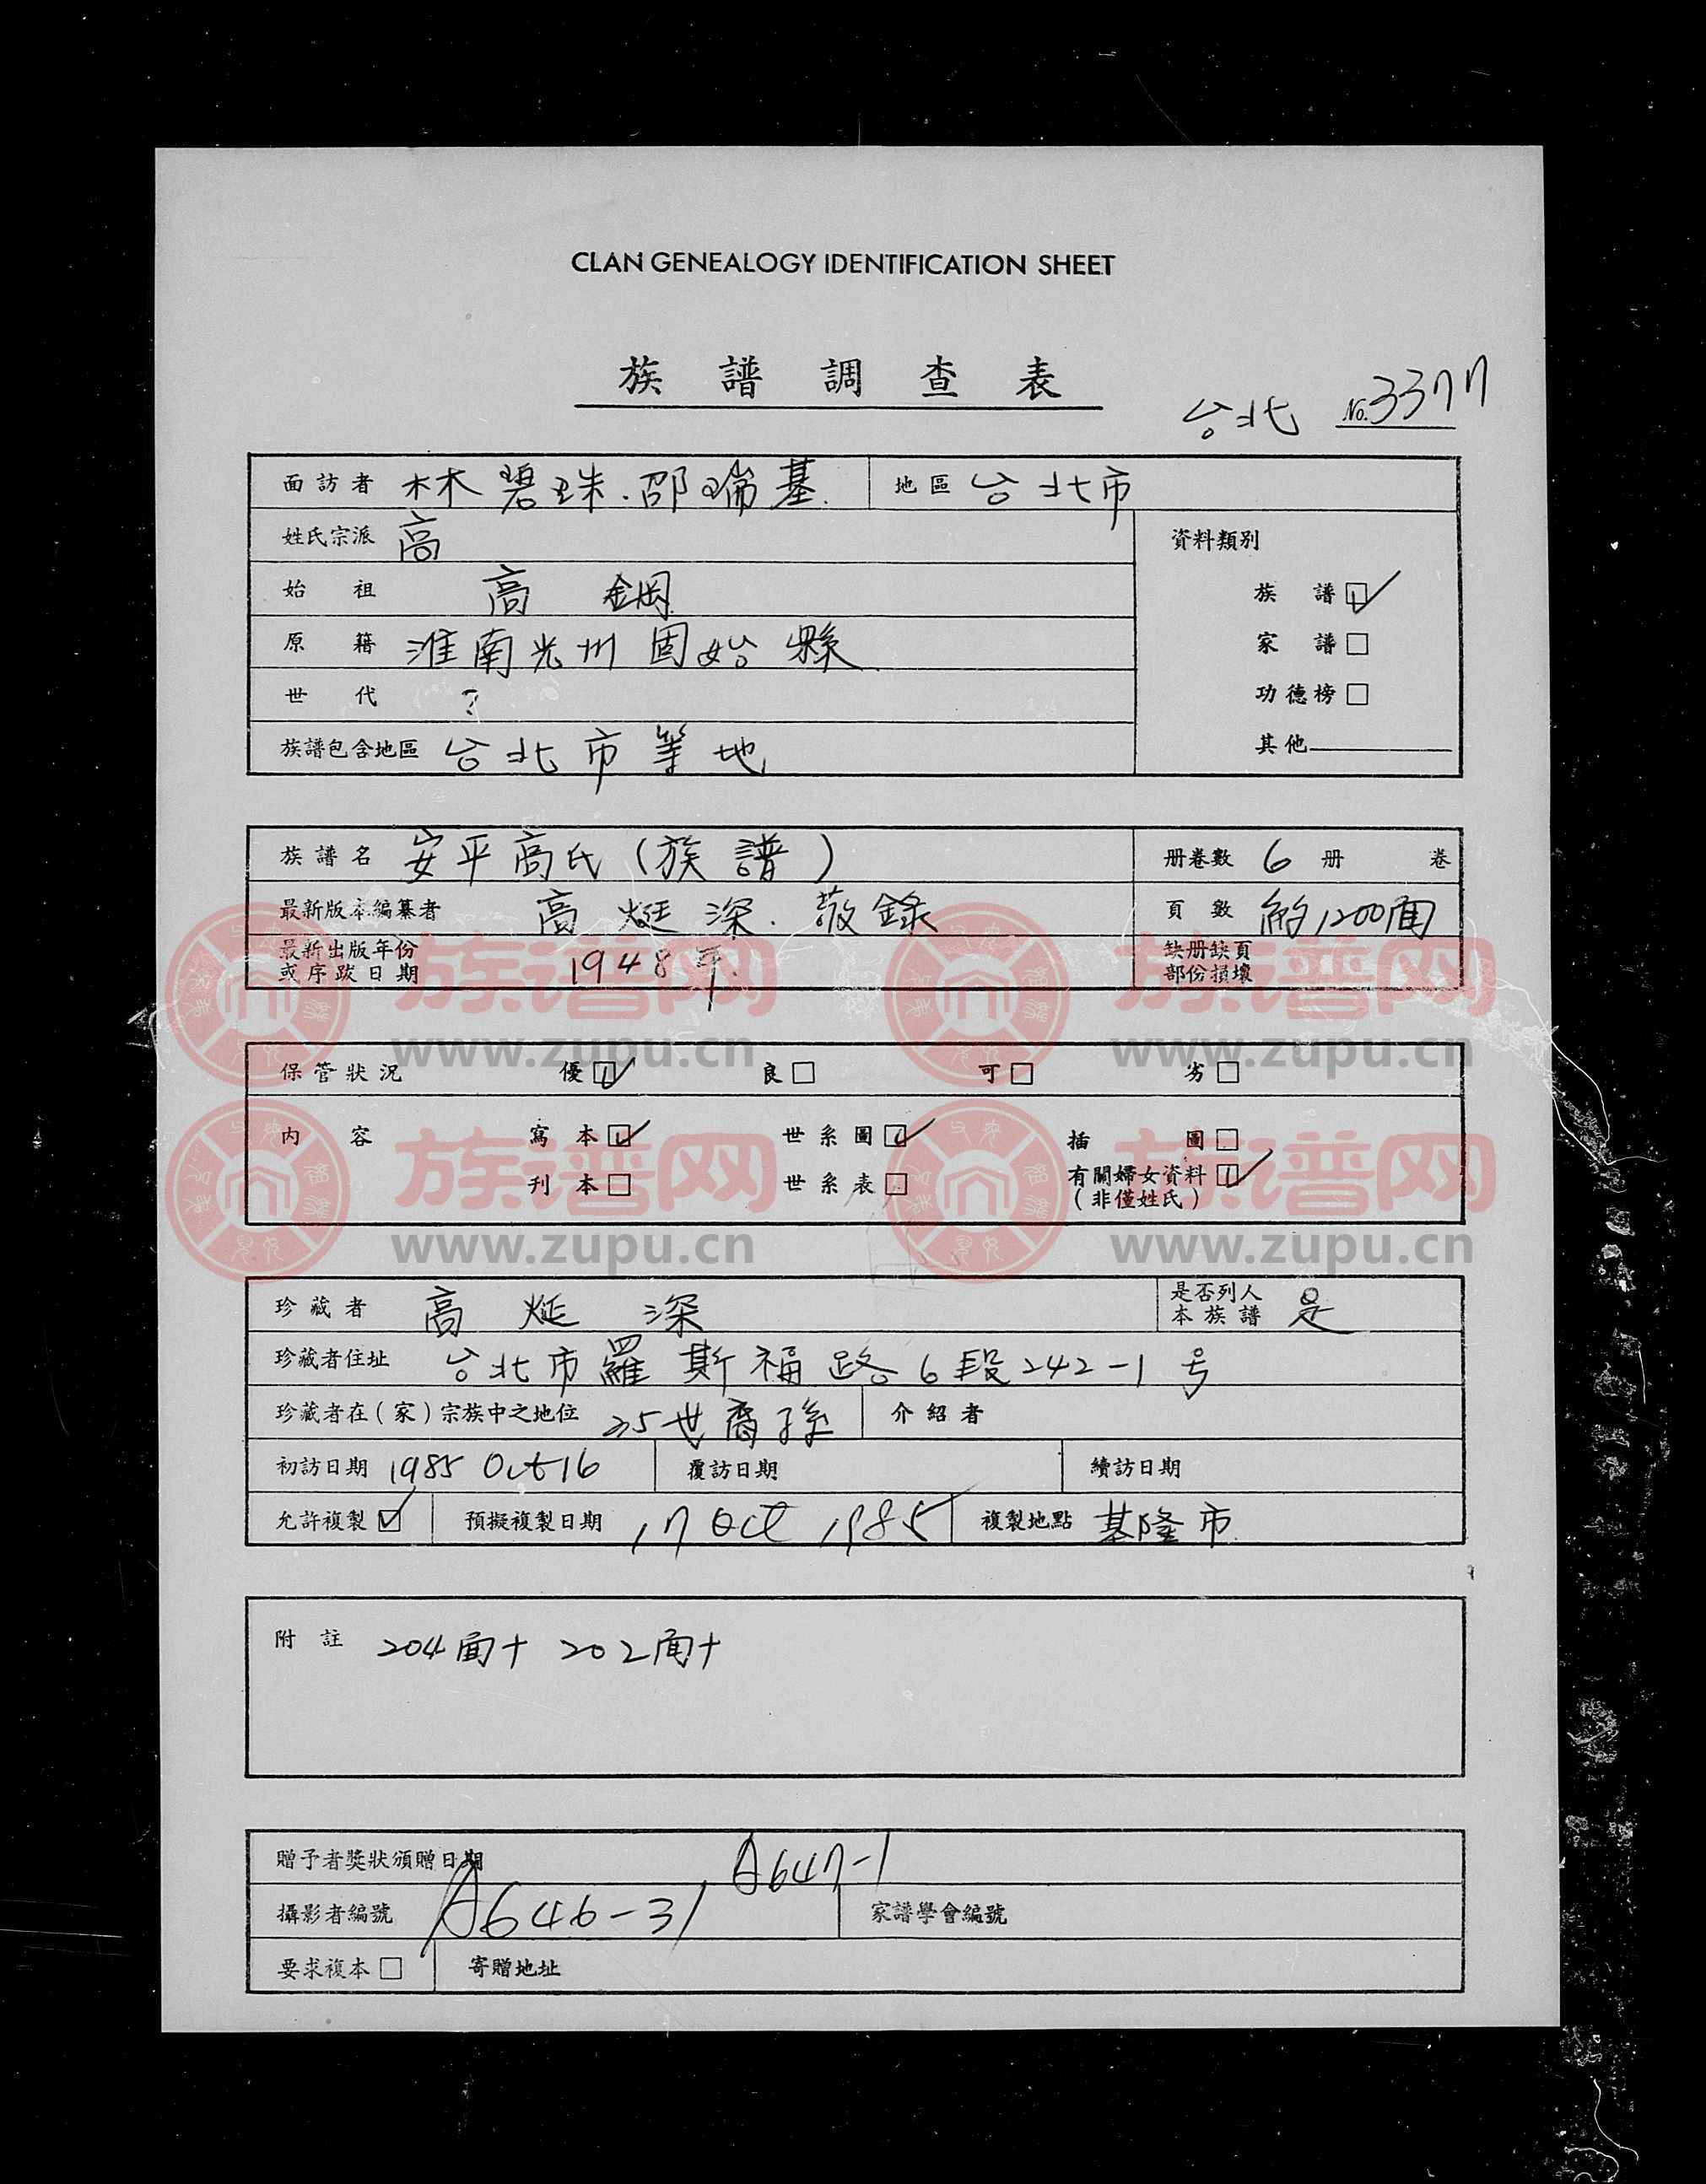 CLAN GENEALOGY IDENTIFICATION SHEET
族譜調查表
台北 No. 3377
面訪者 林碧珠.邵瑞基. 地區 台北市
姓氏宗派 高
資料類別
始祖 高 鋼
族譜☑
原籍 淮南光州固始縣
家譜□
世代 ?
功德榜□
族譜包含地區 台北市等地
其他
族譜名 安平高氏(族譜)
册卷數 6 册 卷
最新版本編纂者 高烶深.敬錄
頁數 約1200面
最新出版年份
或序跋日期 1948年.
缺册缺頁
部份損壞
保管狀況 優☑ 良□ 可□ 劣□
内容 寫本☑ 世系圖☑ 插圖□
刊本□ 世系表□ 有關婦女資料☑
(非僅姓氏)
珍藏者 高烶深
是否列入
本族譜 是
珍藏者住址 台北市羅斯福路6段242-1号
珍藏者在(家)宗族中之地位 25世裔孫 介紹者
初訪日期 1985 Oct 16 覆訪日期 續訪日期
允許複製☑ 預擬複製日期 17 Oct 1985 複製地點 基隆市
附註 204面+ 202面+
贈予者獎狀頒贈日期 A647-1
攝影者編號 A646-31 家譜學會編號
要求複本□ 寄贈地址
族谱网
www.zupu.cn
族谱网
www.zupu.cn
族谱网
www.zupu.cn
族谱网
www.zupu.cn